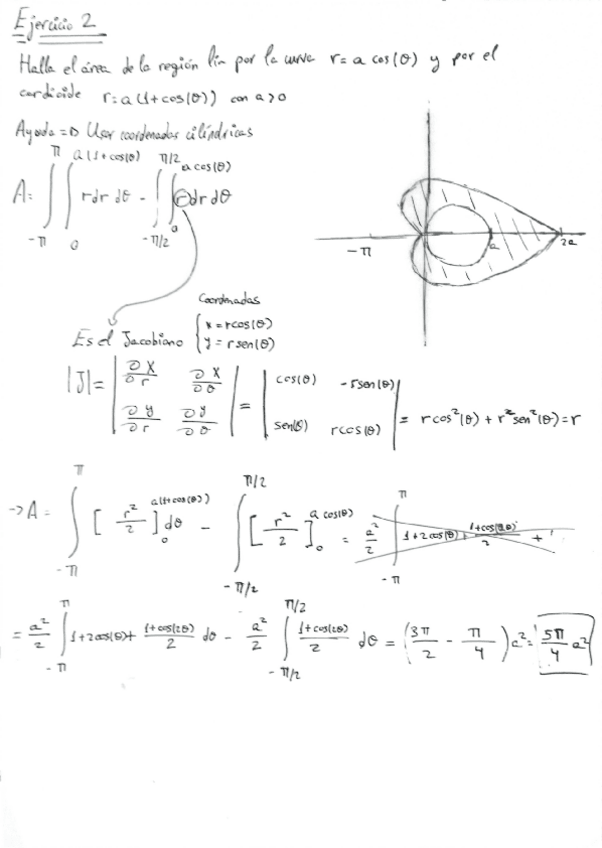 Ejercicio 2
Halla el área de la región lim por la curva r = a cos(θ) y por el
cardioide r = a(1+cos(θ)) con a>0
Ayuda => Usar coordenadas cilíndricas
A = ∫_{-π}^{π} ∫_{0}^{a(1+cos(θ))} r dr dθ - ∫_{-π/2}^{π/2} ∫_{0}^{a cos(θ)} r dr dθ
-π a 2a
Coordenadas
Es el Jacobiano { x = r cos(θ)
y = r sen(θ)
|J| = | ∂x/∂r ∂x/∂θ ; ∂y/∂r ∂y/∂θ | = | cos(θ) -r sen(θ) ; sen(θ) r cos(θ) | = r cos²(θ) + r sen²(θ) = r
→ A = ∫_{-π}^{π} [r²/2]_{0}^{a(1+cos(θ))} dθ - ∫_{-π/2}^{π/2} [r²/2]_{0}^{a cos(θ)} = a²/2 ∫_{-π}^{π} 1+2cos(θ) + (1+cos(2θ))/2 +
= a²/2 ∫_{-π}^{π} 1+2cos(θ) + (1+cos(2θ))/2 dθ - a²/2 ∫_{-π/2}^{π/2} (1+cos(2θ))/2 dθ = (3π/2 - π/4) a² = 5π/4 a²